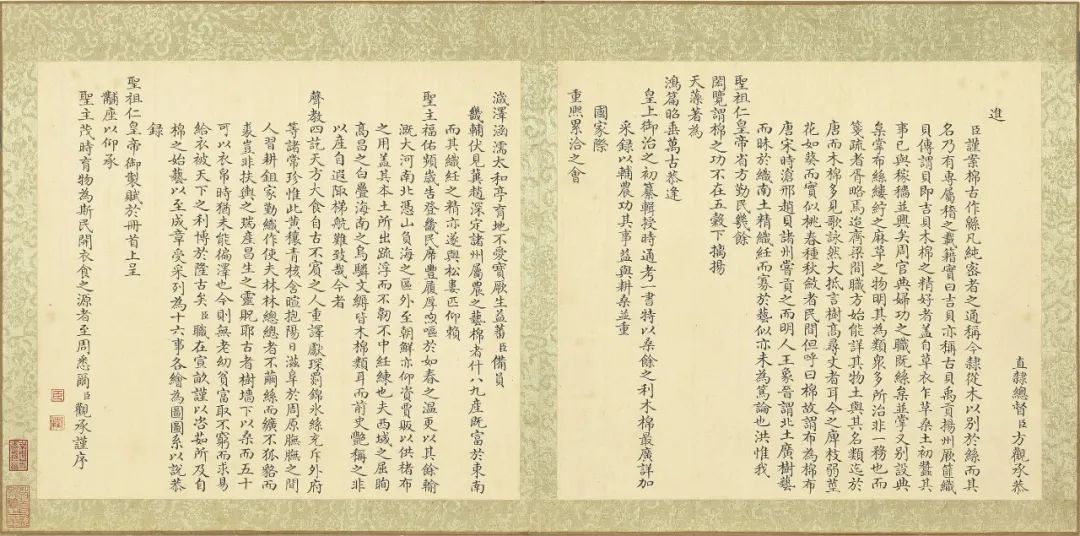 直隸總督臣方觀承恭
進
臣謹案棉古作緜凡純密者之通稱今隸從木以別於絲而其
名乃有專屬稽之載籍實曰古貝亦稱吉貝禹貢揚州厥篚織
貝傳謂貝即吉貝木棉之精好者蓋自草衣乍革桑土初蠶其
事已與稼穡並興矣周官典婦功之職既絲枲並掌又別設典
枲掌布緦縷紵之麻草之物明其為類衆多所治非一務也而
箋疏者胥略焉迨齊梁間職方始能詳其物土與其名類迄於
唐而木棉多見歌詠然大抵言樹高尋丈者耳今之庳枝弱莖
花如葵而實似桃春種秋斂者民間但呼曰棉故謂布為棉布
唐宋時滄邢趙貝諸州嘗貢之而明人王象晉謂北土廣樹藝
而昧於織南土精織紝而寡於藝似亦未為篤論也洪惟我
聖祖仁皇帝省方勤民幾餘
閎覽謂棉之功不在五穀下摛揚
天藻著為
鴻篇昭垂萬古恭逢
皇上御治之初纂輯授時通考一書特以桑餘之利木棉最廣詳加
采錄以輔農功其事益與耕桑並重
國家際
重熙累洽之會
濊澤涵濡太和亭育地不愛寶厥生益蕃臣備員
畿輔伏見冀趙深定諸州屬農之藝棉者什八九產既富於東南
而其織紝之精亦遂與松婁匹仰賴
聖主福佑頻歲告登畿民席豐履厚煦嘔於如春之溫更以其餘輸
溉大河南北憑山負海之區外至朝鮮亦仰資賈販以供楮布
之用蓋其本土所出疏浮而不韌不中紝練也夫西域之屈眴
高昌之白疊海南之烏驎文縟皆木棉類耳而前史艷稱之非
以產自遐陬梯航難致哉今者
聲教四訖天方大食自古不賓之人重譯獻琛罽錦氷絲充斥外府
等諸常珍惟此黃穰青核含暄抱陽日滋阜於周原膴膴之間
人習耕鉏家勤織作使夫林林總總者不繭絲而纊不狐貉而
裘豈非扶輿之瑞產昌生之靈貺耶古者樹墻下以桑而五十
可以衣帛時猶未能徧澤也今則無老幼貧富取不窮而求易
給衣被天下之利博於隆古矣臣職在宣畝謹以咨茹所及自
棉之始藝以至成章受采列為十六事各繪為圖圖系以說恭
錄
聖祖仁皇帝御製賦於冊首上呈
黼座以仰承
聖主茂時育物為斯民開衣食之源者至周悉爾臣觀承謹序